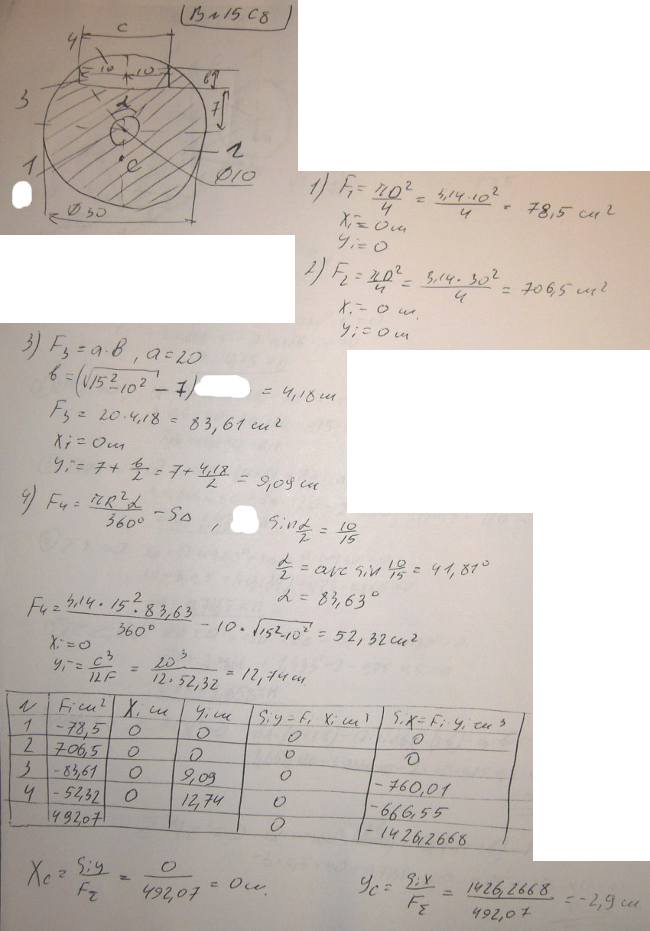 Вл 15 С8
4 c
10 10
3 в
7
α
1 2
c
Ø10
Ø 30
1) F₁ = πD²/4 = 3,14·10²/4 = 78,5 см²
Xᵢ = 0 м
Yᵢ = 0
2) F₂ = πD²/4 = 3,14·30²/4 = 706,5 см²
Xᵢ = 0 м.
Yᵢ = 0 м
3) F₃ = a·в, a = 20
в = (√15²-10² - 7) = 4,18 м
F₃ = 20·4,18 = 83,61 см²
Xᵢ = 0 м
Yᵢ = 7 + в/2 = 7 + 4,18/2 = 9,09 см
4) F₄ = πR²α/360° - S∆, Sin α/2 = 10/15
α/2 = arc sin 10/15 = 41,81°
α = 83,63°
F₄ = 3,14·15²·83,63/360° - 10·√15²-10² = 52,32 см²
Xᵢ = 0
Yᵢ = c³/12F = 20³/12·52,32 = 12,74 см
N Fᵢ см² Xᵢ см Yᵢ см Sᵢy = Fᵢ Xᵢ см³ Sᵢx = Fᵢ·Yᵢ см³
1 -78,5 0 0 0 0
2 706,5 0 0 0 0
3 -83,61 0 9,09 0 -760,01
4 -52,32 0 12,74 0 -666,55
492,07 0 -1426,2668
Xc = Sᵢy/FΣ = 0/492,07 = 0 м.
Yc = Sᵢx/FΣ = 1426,2668/492,07 = -2,9 м